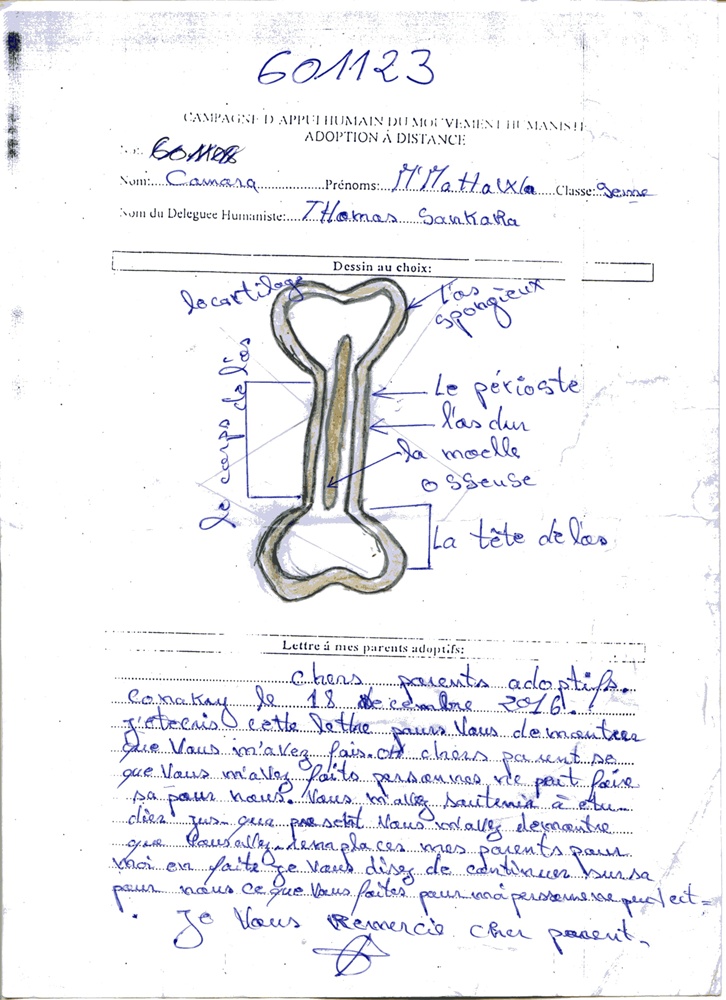 601123
CAMPAGNE D'APPUI HUMAIN DU MOUVEMENT HUMANISTE
ADOPTION Á DISTANCE
Nom: Camara Prénoms: M'Mahawa Classe: 9eme
Nom du Deleguee Humaniste: THomas SankaRa
Dessin au choix:
le cartilage
l'os
spongieux
le corps de l'os
Le périoste
l'os dur
la moelle
osseuse
La tête de l'os
Lettre á mes parents adoptifs:
chers parents adoptifs.
Conakry le 18 decembre 2016.
cette lettre pour Vous demontrer
que Vous m'avez fais. oh chers parent se
que Vous m'avez faits personnes ne peut faire
sa pour nous. Vous m'avez soutenir à étu-
dier jus-que present Vous m'avez demontre
que Vous remplaces mes parents pour
moi en faite je Vous disez de continuer sur sa
pour nous ce que Vous faites pour moi personne ne peut
Je Vous Remercie cher parent.